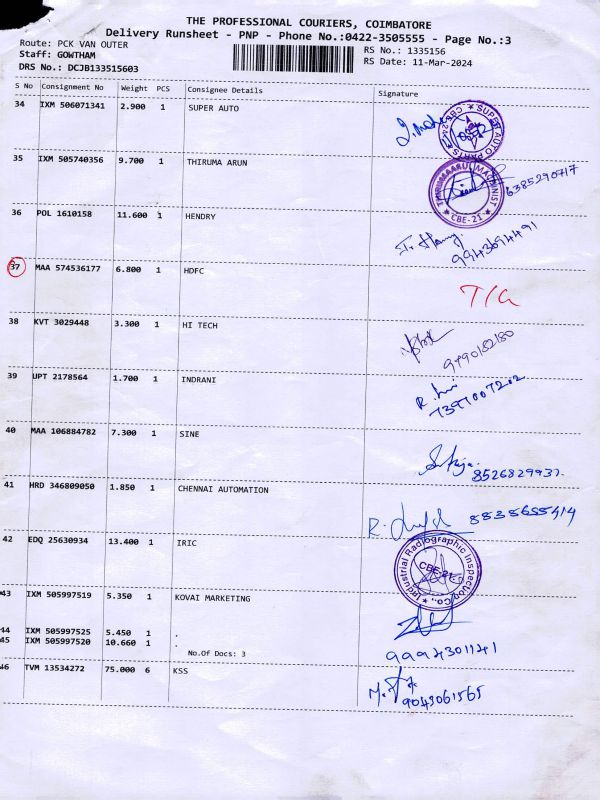 THE PROFESSIONAL COURIERS, COIMBATORE
Delivery Runsheet - PNP - Phone No.:0422-3505555 - Page No.:3
Route: PCK VAN OUTER
RS No.: 1335156
Staff: GOWTHAM
RS Date: 11-Mar-2024
DRS No.: DCJB133515603
S No Consignment No Weight PCS Consignee Details Signature
34 IXM 506071341 2.900 1 SUPER AUTO
35 IXM 505740356 9.700 1 THIRUMA ARUN
CBE-21
6385290717
36 POL 1610158 11.600 1 HENDRY
9943694491
37 MAA 574536177 6.800 1 HDFC
38 KVT 3029448 3.300 1 HI TECH
39 UPT 2178564 1.700 1 INDRANI
40 MAA 106884782 7.300 1 SINE
8526829937
41 HRD 346809050 1.850 1 CHENNAI AUTOMATION
42 EDQ 25630934 13.400 1 IRIC
Industrial Radiographic Inspection Co.,
CBE-21
43 IXM 505997519 5.350 1 KOVAI MARKETING
44 IXM 505997525 5.450 1 .
45 IXM 505997520 10.660 1 .
No.Of Docs: 3
9994301141
46 TVM 13534272 75.000 6 KSS
9043061565